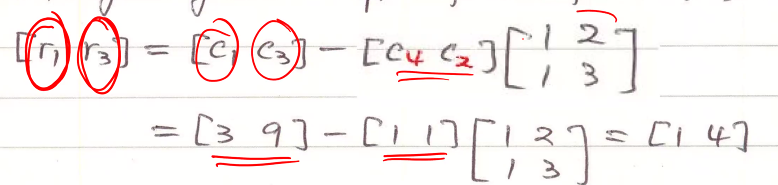 [r₁ r₃] = [c₁ c₃] − [c₄ c₂] [1 2; 1 3]
= [3 9] − [1 1] [1 2; 1 3] = [1 4]